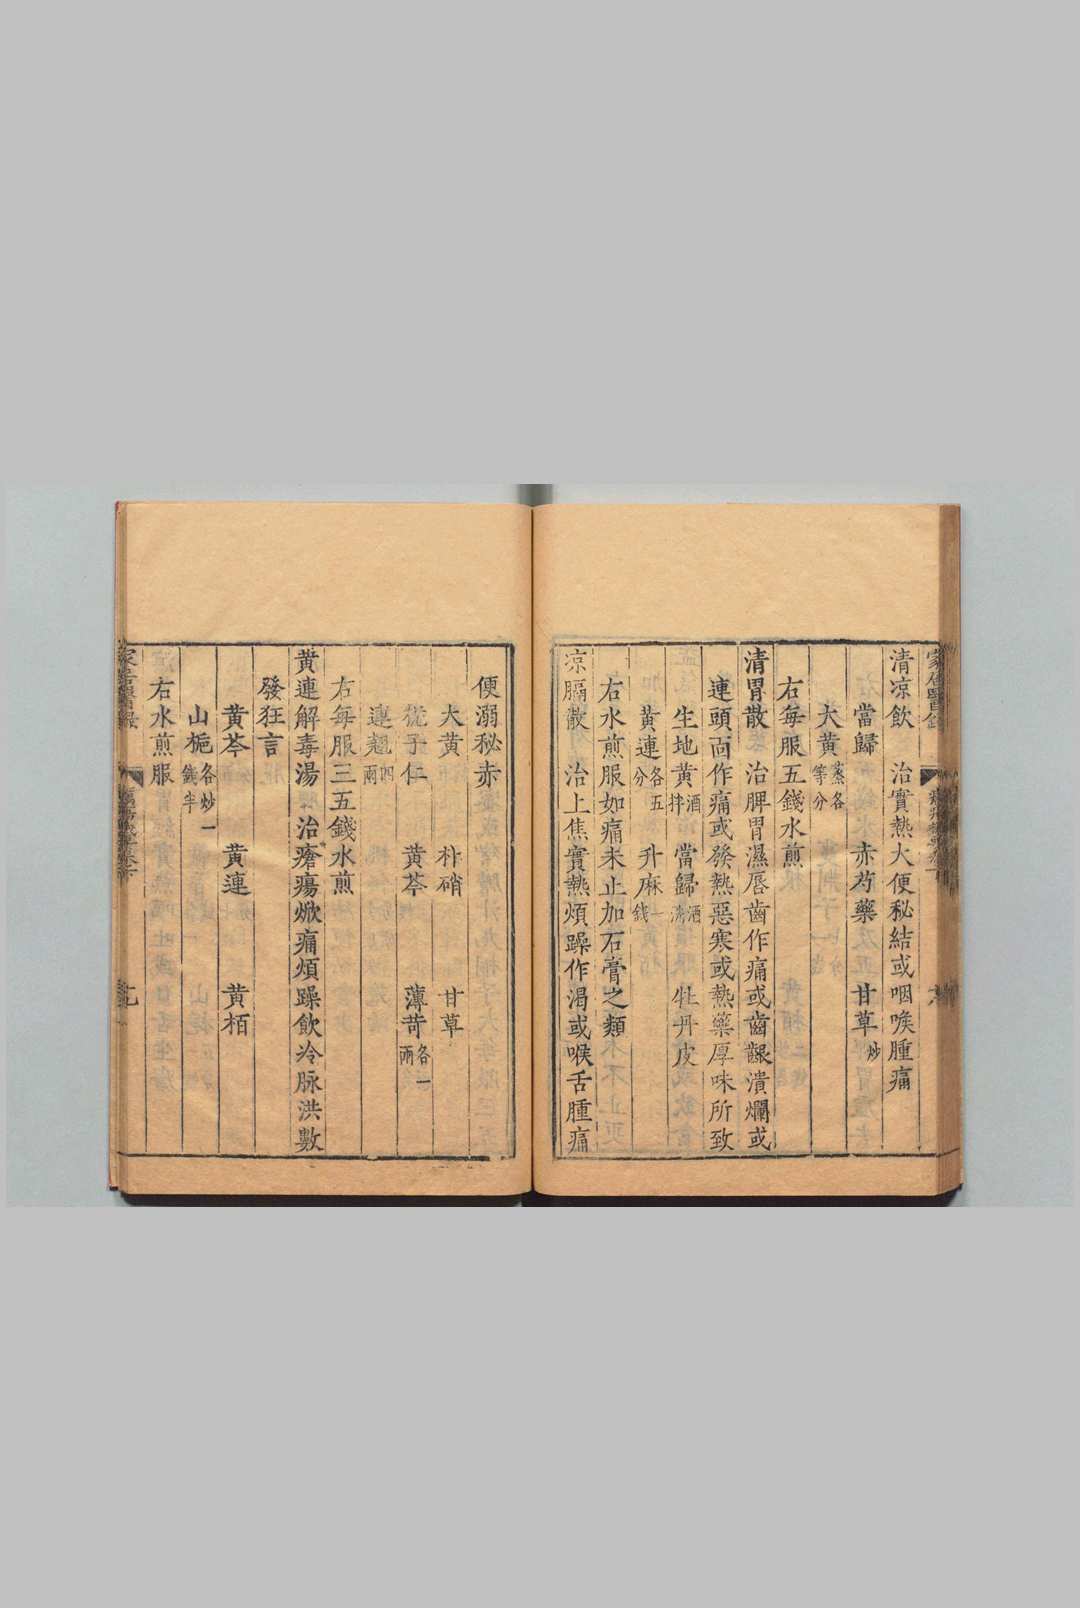 清凉飲　治實熱大便秘結或咽喉腫痛
當歸　赤芍藥　甘草炒
大黄蒸各等分
右每服五錢水煎
清胃散　治脾胃濕唇齒作痛或齒齦潰爛或
連頭面作痛或發熱惡寒或熱藥厚味所致
生地黄酒拌　當歸酒洗　牡丹皮
黄連各五分　升麻一錢
右水煎服如痛未止加石膏之類
凉膈散　治上焦實熱煩躁作渴或喉舌腫痛
便溺秘赤
大黄　朴硝　甘草
梔子仁　黄芩　薄苛各一兩
連翹四兩
右每服三五錢水煎
黄連解毒湯　治瘡瘍焮痛煩躁飲冷脉洪數
發狂言
黄芩　黄連　黄栢
山梔各炒一錢半
右水煎服